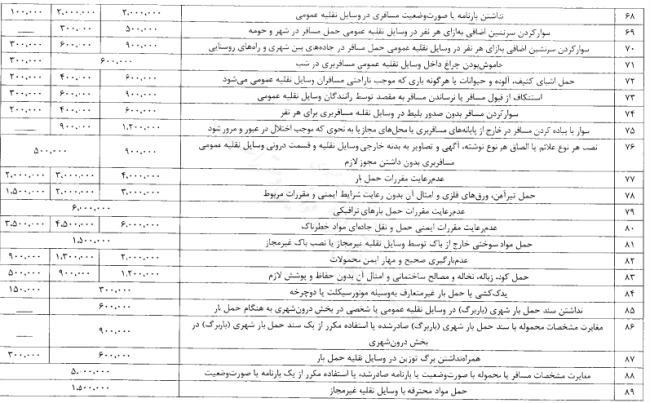 ۶۸ نداشتن بارنامه یا صورت‌وضعیت مسافری در وسایل نقلیه عمومی ۲.۰۰۰.۰۰۰ ۲.۰۰۰.۰۰۰ ۱۰۰.۰۰۰
۶۹ سوارکردن سرنشین اضافی به‌ازای هر نفر در وسایل نقلیه عمومی حمل مسافر در شهر و حومه ۵۰۰.۰۰۰ ۳۰۰.۰۰۰ ——
۷۰ سوارکردن سرنشین اضافی به‌ازای هر نفر در وسایل نقلیه عمومی حمل مسافر در جاده‌های بین شهری و راه‌های روستایی ۹۰۰.۰۰۰ ۶۰۰.۰۰۰ ۳۰۰.۰۰۰
۷۱ خاموش‌بودن چراغ داخل وسایل نقلیه عمومی مسافربری در شب ۶۰۰.۰۰۰ ۳۰۰.۰۰۰
۷۲ حمل اشیای کثیف، آلوده و حیوانات یا هرگونه باری که موجب ناراحتی مسافران وسایل نقلیه عمومی می‌شود ۶۰۰.۰۰۰ ۴۰۰.۰۰۰ ۲۰۰.۰۰۰
۷۳ استنکاف از قبول مسافر یا نرساندن مسافر به مقصد توسط رانندگان وسایل نقلیه عمومی ۹۰۰.۰۰۰ ۶۰۰.۰۰۰ ۳۰۰.۰۰۰
۷۴ سوارکردن مسافر بدون صدور بلیط در وسایل نقلیه مسافربری برای هر نفر ۶۰۰.۰۰۰ ۴۰۰.۰۰۰ ۲۰۰.۰۰۰
۷۵ سوار یا پیاده کردن مسافر در خارج از پایانه‌های مسافربری یا محل‌های مجاز یا به نحوی که موجب اختلال در عبور و مرور شود ۱.۲۰۰.۰۰۰ ۹۰۰.۰۰۰ ——
۷۶ نصب هر نوع علائم یا الصاق هر نوع نوشته، آگهی و تصاویر به بدنه خارجی وسایل نقلیه و قسمت درونی وسایل نقلیه عمومی ۹۰۰.۰۰۰ ۵۰۰.۰۰۰
مسافربری بدون داشتن مجوز لازم
۷۷ عدم‌رعایت مقررات حمل بار ۴.۰۰۰.۰۰۰ ۳.۰۰۰.۰۰۰ ۲.۰۰۰.۰۰۰
۷۸ حمل تیرآهن، ورق‌های فلزی و امثال آن بدون رعایت شرایط ایمنی و مقررات مربوط ۳.۰۰۰.۰۰۰ ۲.۰۰۰.۰۰۰ ۱.۵۰۰.۰۰۰
۷۹ عدم‌رعایت مقررات حمل بارهای ترافیکی ۶.۰۰۰.۰۰۰
۸۰ عدم‌رعایت مقررات ایمنی حمل و نقل جاده‌ای مواد خطرناک ۶.۰۰۰.۰۰۰ ۴.۵۰۰.۰۰۰ ۳.۵۰۰.۰۰۰
۸۱ حمل مواد سوختی خارج از باک توسط وسایل نقلیه غیرمجاز یا نصب باک غیرمجاز ۱.۵۰۰.۰۰۰
۸۲ عدم‌بارگیری صحیح و مهار ایمن محمولات ۲.۰۰۰.۰۰۰ ۱.۳۰۰.۰۰۰ ۹۰۰.۰۰۰
۸۳ حمل کود، زباله، نخاله و مصالح ساختمانی و امثال آن بدون حفاظ و پوشش لازم ۱.۲۰۰.۰۰۰ ۹۰۰.۰۰۰ ۵۰۰.۰۰۰
۸۴ یدک‌کشی یا حمل بار غیرمتعارف به‌وسیله موتورسیکلت یا دوچرخه ۳۰۰.۰۰۰ ۱۵۰.۰۰۰
۸۵ نداشتن سند حمل بار شهری (باربرگ) در وسایل نقلیه عمومی یا شخصی در بخش درون‌شهری به هنگام حمل بار ۶۰۰.۰۰۰ ——
۸۶ مغایرت مشخصات محموله با سند حمل بار شهری (باربرگ) صادرشده یا استفاده مکرر از یک سند حمل بار شهری (باربرگ) در ۹۰۰.۰۰۰ ——
بخش درون‌شهری
۸۷ همراه‌نداشتن برگ توزین در وسایل نقلیه حمل بار ۶۰۰.۰۰۰ ۳۰۰.۰۰۰
۸۸ مغایرت مشخصات مسافر یا محموله با صورت‌وضعیت یا بارنامه صادرشده، یا استفاده مکرر از یک بارنامه یا صورت‌وضعیت ۵.۰۰۰.۰۰۰
۸۹ حمل مواد محترقه با وسایل نقلیه غیرمجاز ۱.۵۰۰.۰۰۰